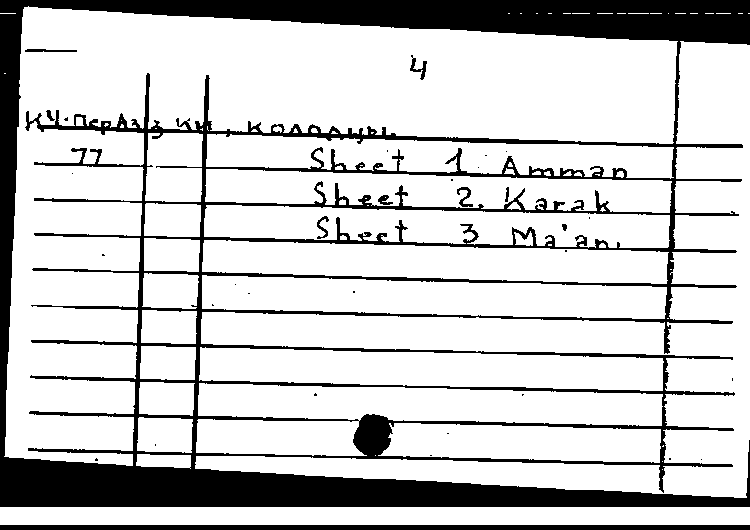 4
КЧ-ПерАзз ки, колодцы.
77 Sheet 1 Amman
Sheet 2. Karak
Sheet 3 Ma'an.